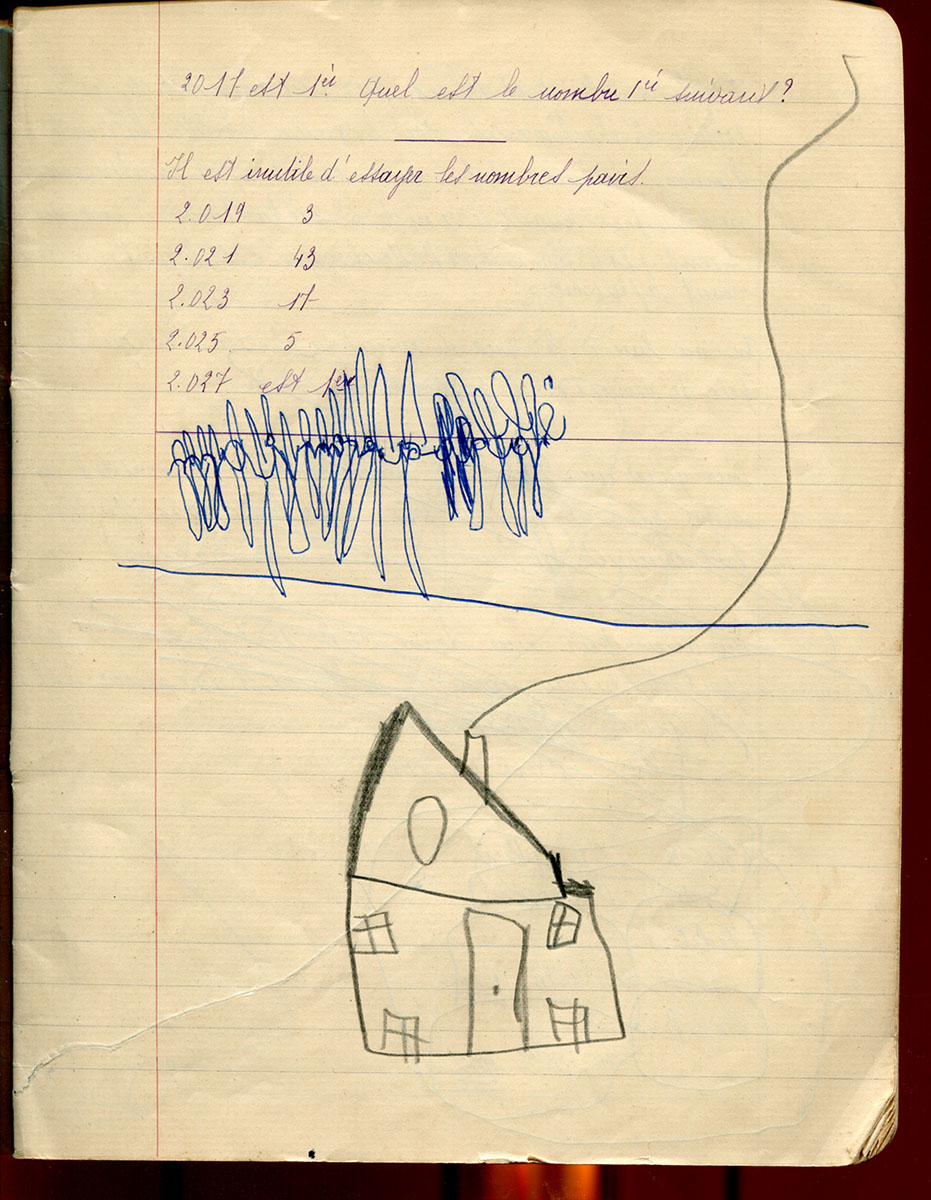 2017 est 1er. Quel est le nombre 1er suivant?
Il est inutile d'essayer les nombres pairs.
2.019 3
2.021 43
2.023 17
2.025 5
2.027 est 1er